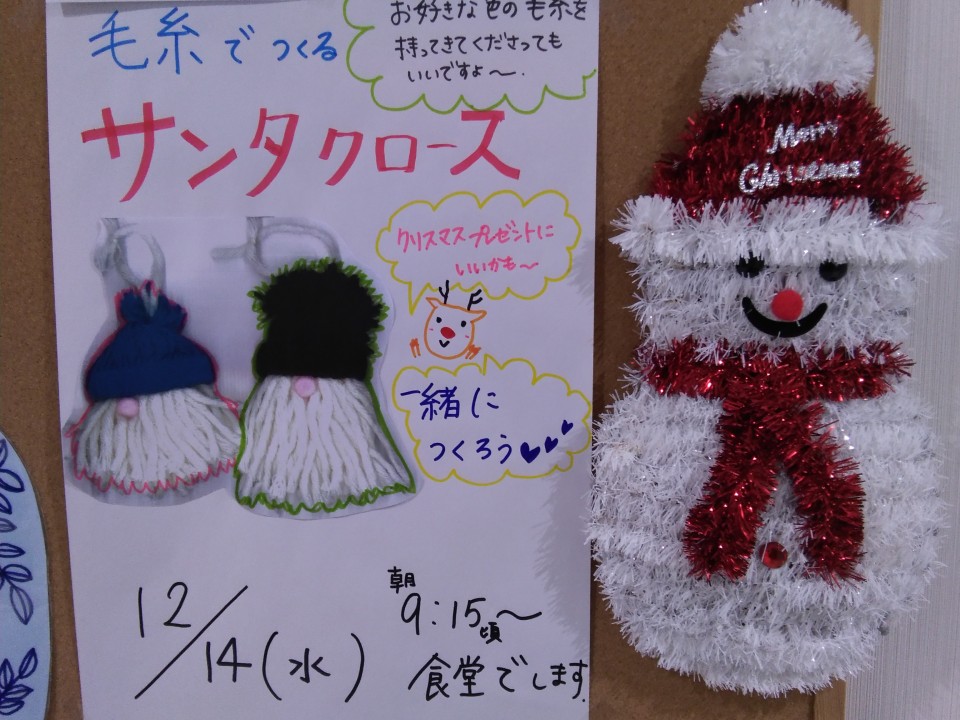 お好きな色の毛糸を
持ってきてくださっても
いいですよ～.
毛糸でつくる
サンタクロース
クリスマスプレゼントに
いいかも～
一緒に
つくろう
12/14(水)
朝
9:15頃～
食堂でします
Merry
Christmas